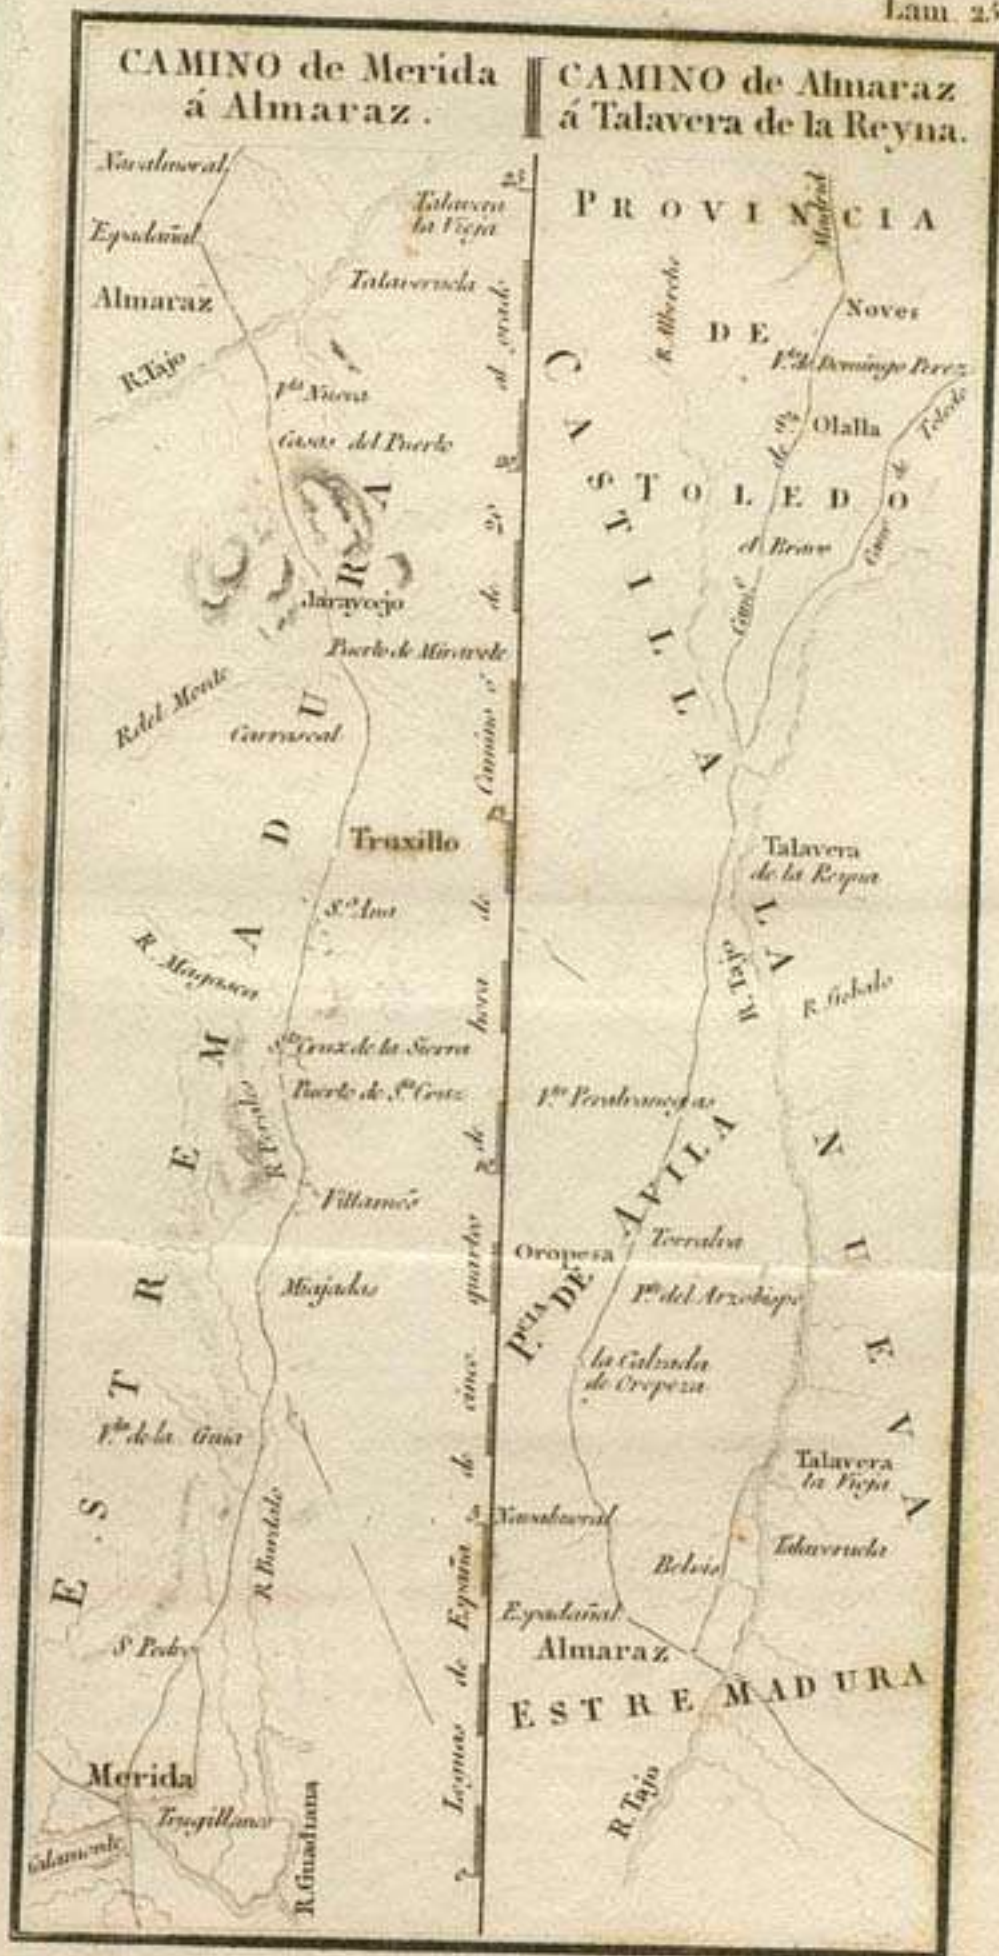 Lam 2.
CAMINO de Merida
á Almaraz.
Navalmoral
Espadañal
Almaraz
R. Tajo
Talavera
la Vieja
Talaveruela
V.ta Nueva
Casas del Puerto
Jaraycejo
Puerto de Miravete
R. del Monte
Carrascal
Truxillo
S.ta Ana
R. Magasca
S.ta Cruz de la Sierra
Puerto de S.ta Cruz
R. Perales
Villamés
Miajadas
V.ta de la Guia
R. Burdalo
S. Pedro
Merida
Trugillanos
Calamonte
R. Guadiana
ESTREMADURA
Leguas de España de cinco quartos de hora de Camino ó de 20 al grado
CAMINO de Almaraz
á Talavera de la Reyna.
PROVINCIA
DE
TOLEDO
Madrid
R. Alberche
Noves
V.ta de Domingo Perez
Olalla
de S.ta
el Bravo
Cam.o
Cam.o de Toledo
CASTILLA
LA
NUEVA
Talavera
de la Reyna
R. Tajo
R. Gebalo
V.ta Peralvanegas
P.cia DE AVILA
Oropesa
Torralva
P.te del Arzobispo
la Calzada
de Oropeza
Talavera
la Vieja
Navalmoral
Belvis
Talaveruela
Espadañal
Almaraz
ESTREMADURA
R. Tajo